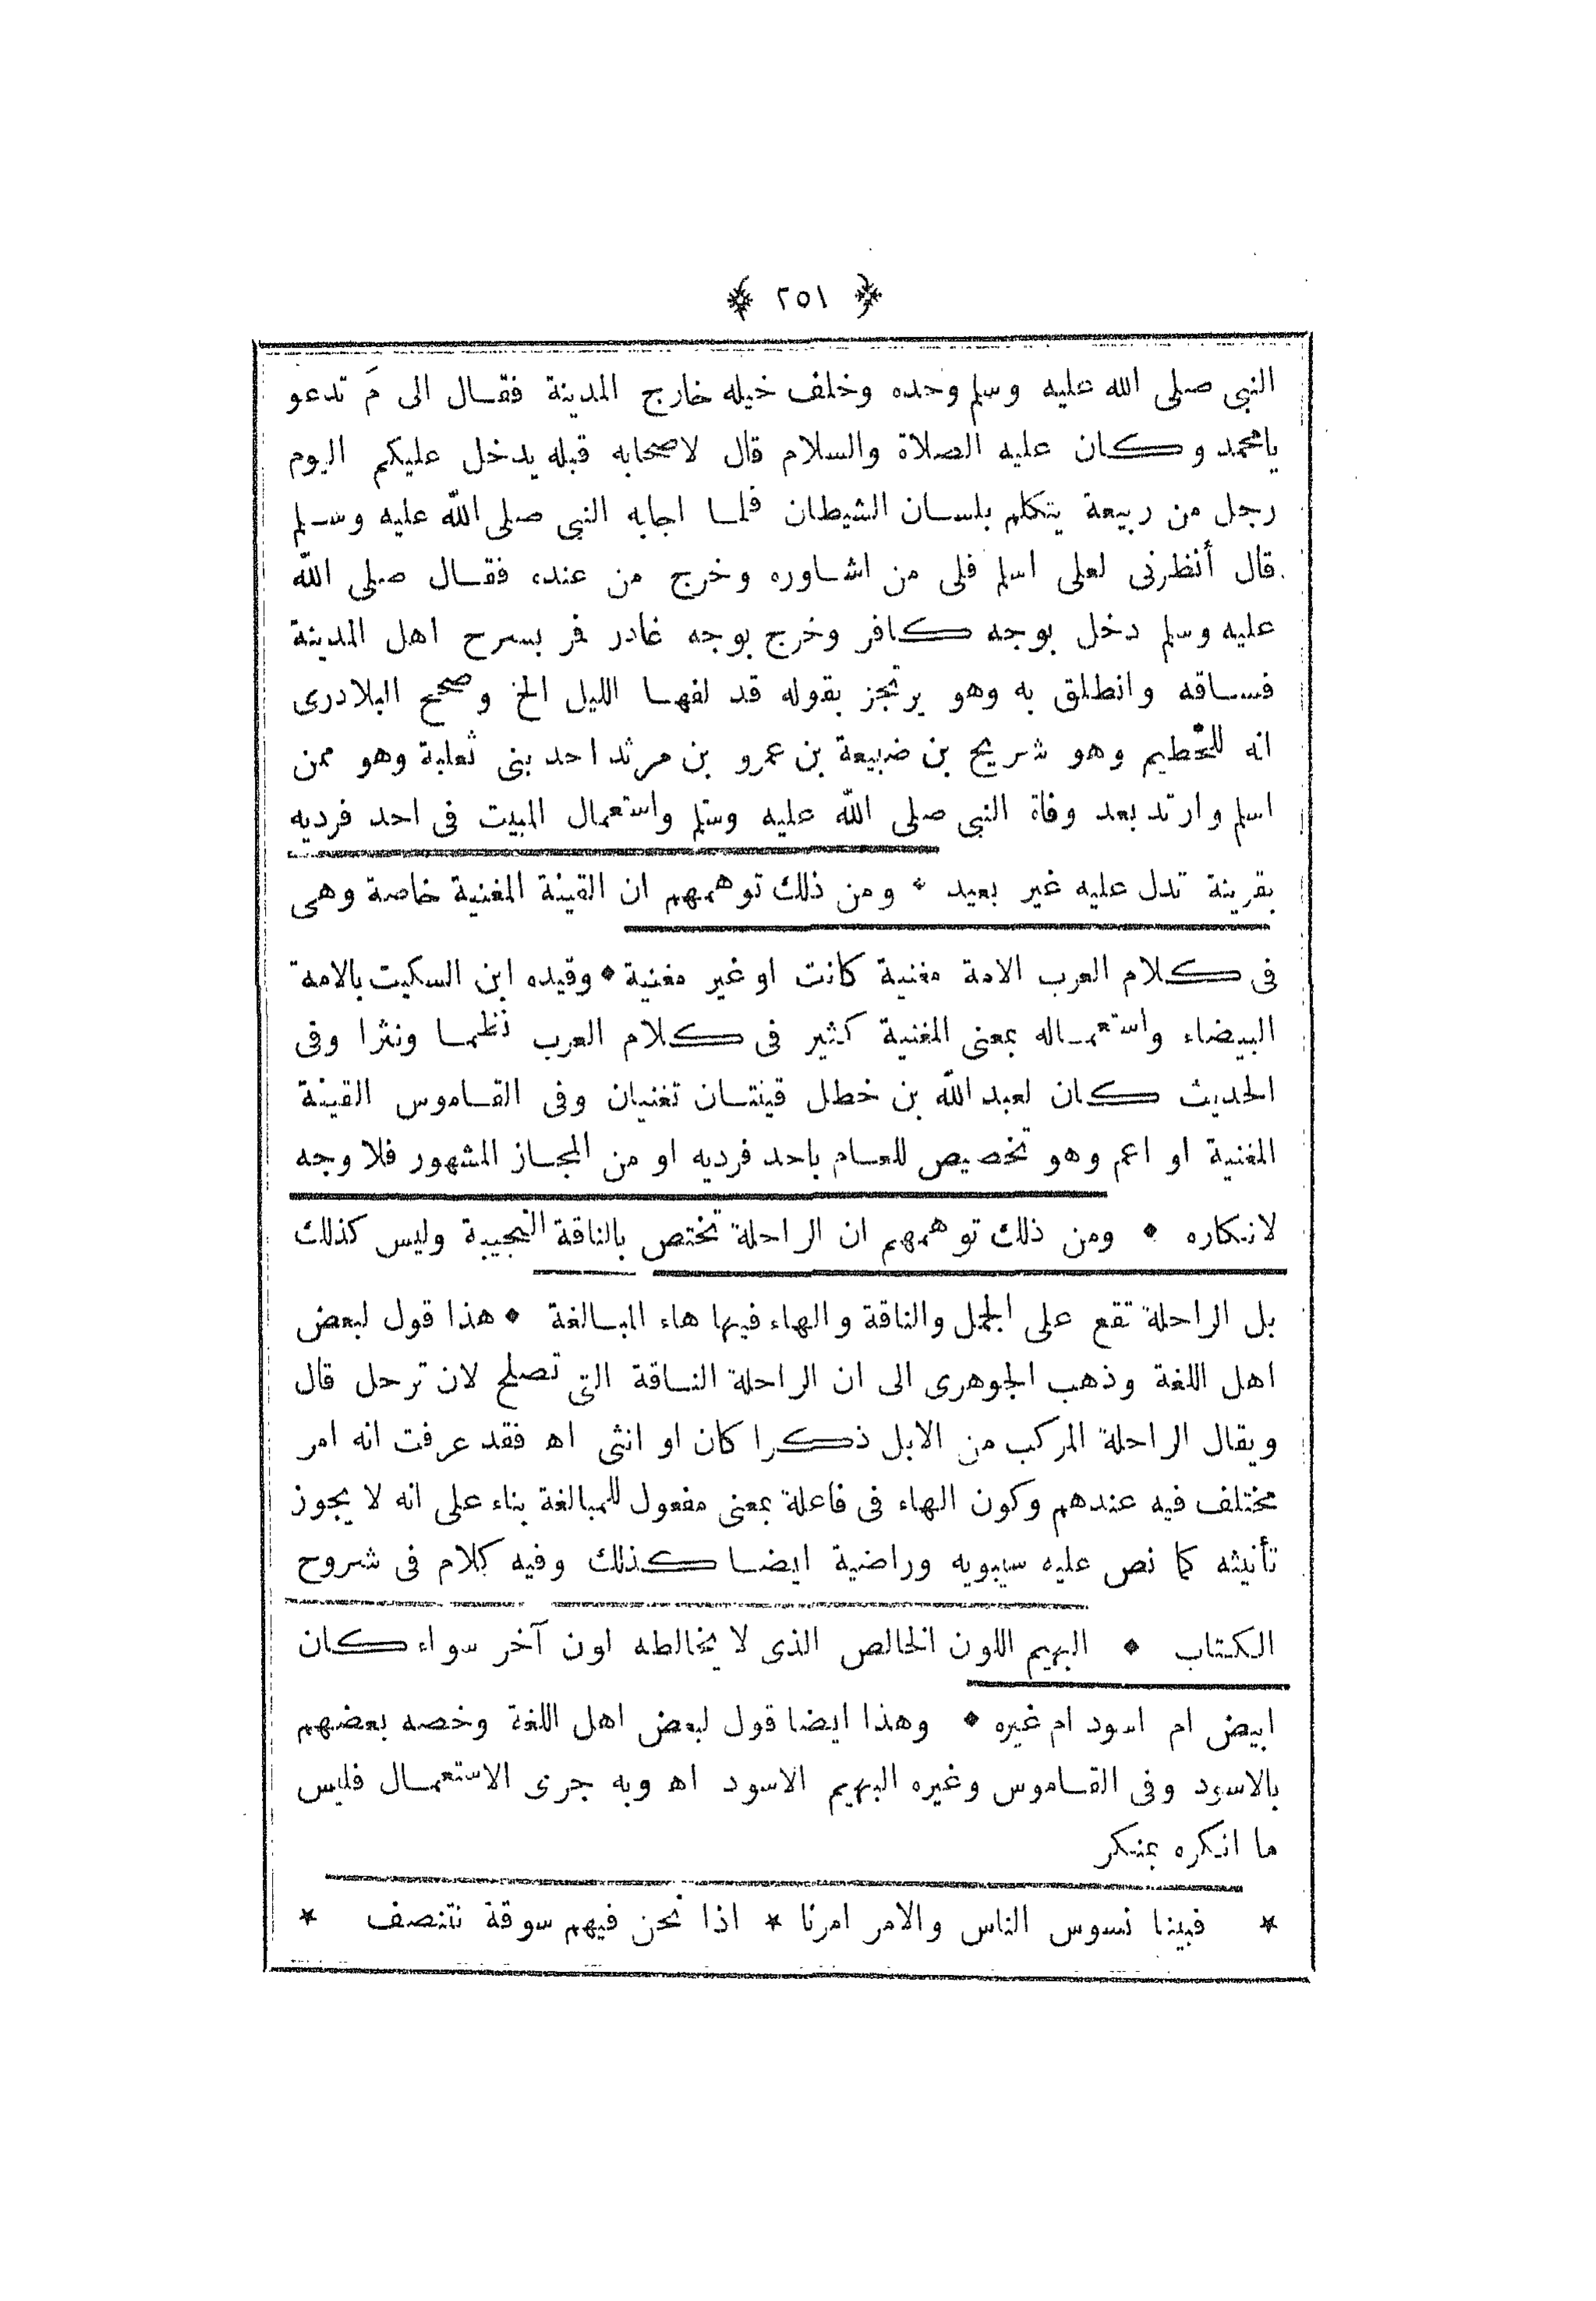 ﴿ ٢٥١ ﴾
النبى صلى الله عليه وسلم وحده وخلف خيله خارج المدينة فقال الى مَ تدعو
يامحمد وكان عليه الصلاة والسلام قال لاصحابه قبله يدخل عليكم اليوم
رجل من ربيعة يتكلم بلسان الشيطان فلما اجابه النبى صلى الله عليه وسلم
قال أنظرنى لعلى اسلم فلى من اشاوره وخرج من عنده فقال صلى الله
عليه وسلم دخل بوجه كافر وخرج بوجه غادر فمر بسرح اهل المدينة
فساقه وانطلق به وهو يرتجز بقوله قد لفها الليل الخ وصحح البلادرى
انه للحطيم وهو شريح بن ضبيعة بن عمرو بن مرثد احد بنى ثعلبة وهو ممن
اسلم وارتد بعد وفاة النبى صلى الله عليه وسلم واستعمال المبيت فى احد فرديه
بقرينة تدل عليه غير بعيد * ومن ذلك توهمهم ان القينة المغنية خاصة وهى
فى كلام العرب الامة مغنية كانت او غير مغنية * وقيده ابن السكيت بالامة
البيضاء واستعماله بمعنى المغنية كثير فى كلام العرب نظما ونثرا وفى
الحديث كان لعبد الله بن خطل قينتان تغنيان وفى القاموس القينة
المغنية او اعم وهو تخصيص للعام باحد فرديه او من المجاز المشهور فلا وجه
لانكاره * ومن ذلك توهمهم ان الراحلة تختص بالناقة النجيبة وليس كذلك
بل الراحلة تقع على الجمل والناقة والهاء فيها هاء المبالغة * هذا قول لبعض
اهل اللغة وذهب الجوهرى الى ان الراحلة الناقة التى تصلح لان ترحل قال
ويقال الراحلة المركب من الابل ذكرا كان او انثى اه فقد عرفت انه امر
مختلف فيه عندهم وكون الهاء فى فاعلة بمعنى مفعول للمبالغة بناء على انه لا يجوز
تأنيثه كما نص عليه سيبويه وراضية ايضا كذلك وفيه كلام فى شروح
الكتاب * البهيم اللون الخالص الذى لا يخالطه لون آخر سواء كان
ابيض ام اسود ام غيره * وهذا ايضا قول لبعض اهل اللغة وخصه بعضهم
بالاسود وفى القاموس وغيره البهيم الاسود اه وبه جرى الاستعمال فليس
ما انكره بمنكر
* فبينا نسوس الناس والامر امرنا * اذا نحن فيهم سوقة نتنصف *